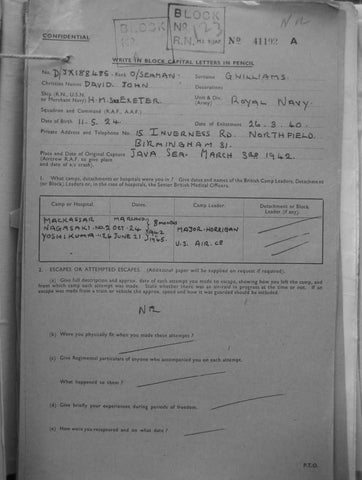 NR
BLOCK
BLOCK
NO 23
R.N.
CONFIDENTIAL
No 41192 A
WRITE IN BLOCK CAPITAL LETTERS IN PENCIL.
No. D/JX188485 Rank O/SEAMAN Surname GWILLIAMS.
Christian Names DAVID JOHN Decorations
Ship (R.N., U.S.N. or Merchant Navy) H.M.S EXETER. Unit & Div. (Army) ROYAL NAVY.
Squadron and Command (R.A.F., A.A.F.)
Date of Birth 11.5.24 Date of Enlistment 26.3.40.
Private Address and Telephone No. 15 INVERNESS RD. NORTHFIELD.
BIRMINGHAM 31.
Place and Date of Original Capture JAVA SEA. MARCH 3RD 1942.
(Aircrew R.A.F. to give place and date of a/c crash).
1. What camps, detachments or hospitals were you in? Give dates and names of the British Camp Leaders, Detachment (or Block) Leaders or, in the case of hospitals, the Senior British Medical Officers.
Camp or Hospital. Dates. Camp Leader. Detachment or Block Leader (if any).
MACKASSAR MARCH 8 months
NAGASAKI NO.2 OCT. 24 1942 MAJOR HORRIGAN
YOSHIKUMA 26 JUNE 21 1945. U.S. AIR.
2. ESCAPES OR ATTEMPTED ESCAPES. (Additional paper will be supplied on request if required).
(a) Give full description and approx. date of each attempt you made to escape, showing how you left the camp, and from which camp each attempt was made. State whether there was an air-raid in progress at the time or not. If an escape was made from a train or vehicle the approx. speed and how it was guarded should be included.
NR
(b) Were you physically fit when you made these attempts?
(c) Give Regimental particulars of anyone who accompanied you on each attempt.
What happened to them?
(d) Give briefly your experiences during periods of freedom.
(e) How were you recaptured and on what date?
P.T.O.